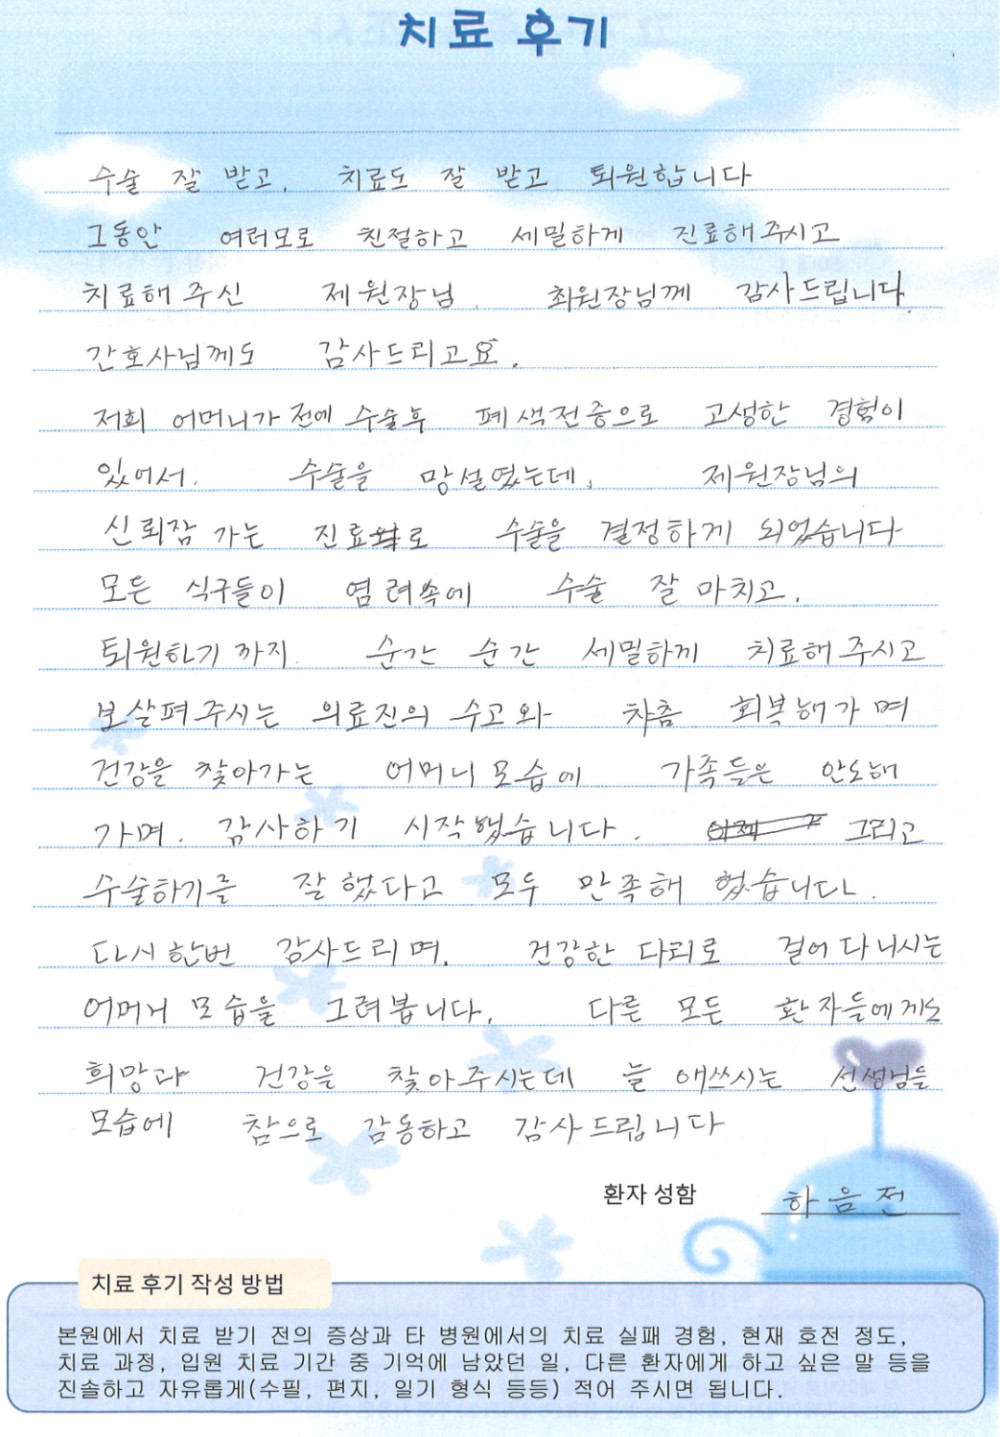 치료 후기
수술 잘 받고, 치료도 잘 받고 퇴원합니다
그동안 여러모로 친절하고 세밀하게 진료해주시고
치료해주신 제원장님, 최원장님께 감사드립니다.
간호사님께도 감사드리고요.
저희 어머니가 전에 수술후 폐색전증으로 고생한 경험이
있어서. 수술을 망설였는데, 제원장님의
신뢰감 가는 진료로 수술을 결정하게 되었습니다
모든 식구들이 염려속에 수술 잘 마치고.
퇴원하기 까지. 순간 순간 세밀하게 치료해주시고
보살펴주시는 의료진의 수고와 차츰 회복해가며
건강을 찾아가는 어머니 모습에 가족들은 안도해
가며. 감사하기 시작했습니다. 그리고
수술하기를 잘 했다고 모두 만족해 했습니다.
다시 한번 감사드리며. 건강한 다리로 걸어 다니시는
어머니 모습을 그려봅니다. 다른 모든 환자들에게도
희망과 건강을 찾아주시는데 늘 애쓰시는 선생님들
모습에 참으로 감동하고 감사드립니다
환자 성함 하음전
치료 후기 작성 방법
본원에서 치료 받기 전의 증상과 타 병원에서의 치료 실패 경험, 현재 호전 정도,
치료 과정, 입원 치료 기간 중 기억에 남았던 일, 다른 환자에게 하고 싶은 말 등을
진솔하고 자유롭게(수필, 편지, 일기 형식 등등) 적어 주시면 됩니다.